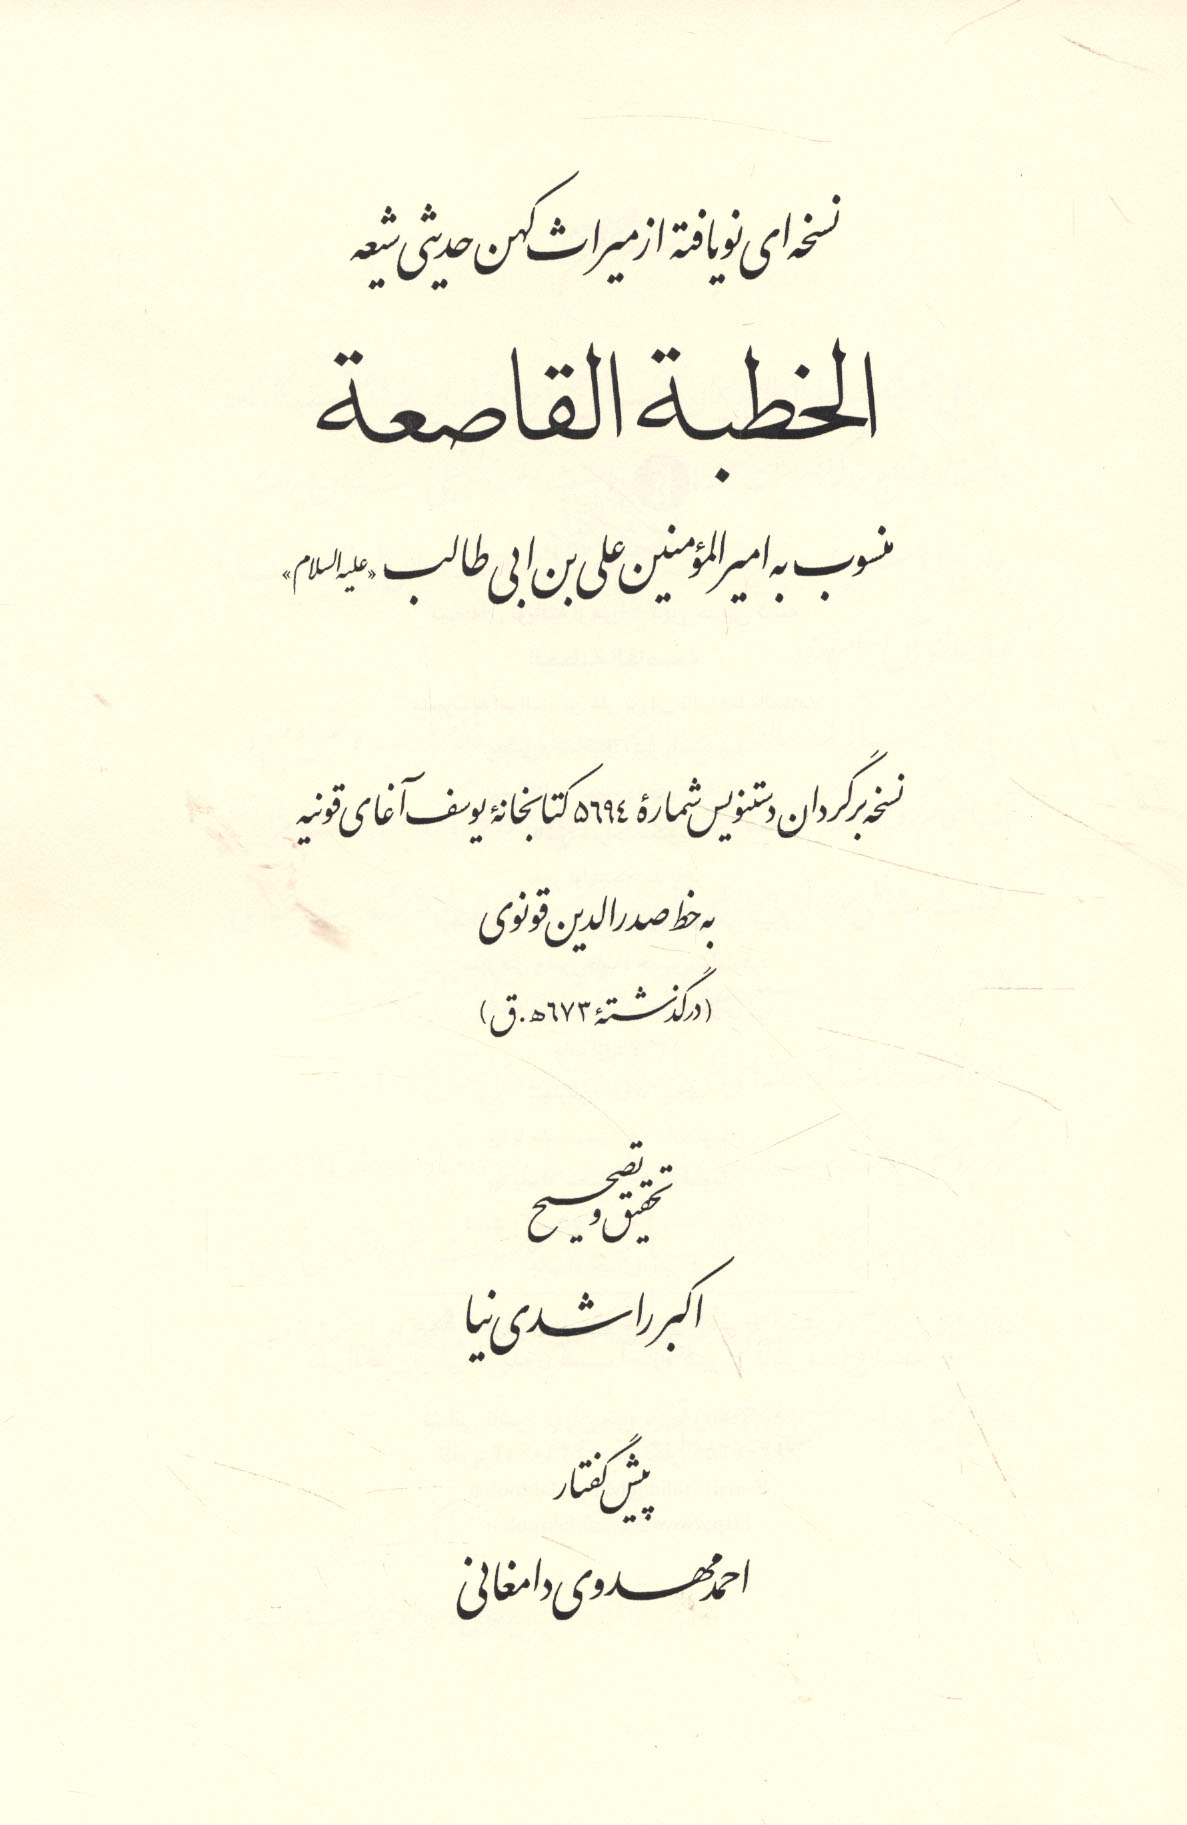 نسخه‌ای نویافته از میراث کهن حدیثی شیعه
الخطبة القاصعة
منسوب به امیرالمؤمنین علی بن ابی طالب «علیه السلام»
نسخه برگردان دستنویس شمارهٔ ٥٦٩٤ کتابخانهٔ یوسف آغای قونیه
به خط صدرالدین قونوی
(درگذشتهٔ ٦٧٣ ه‍.ق)
تحقیق و تصحیح
اکبر راشدی نیا
پیش گفتار
احمد مهدوی دامغانی